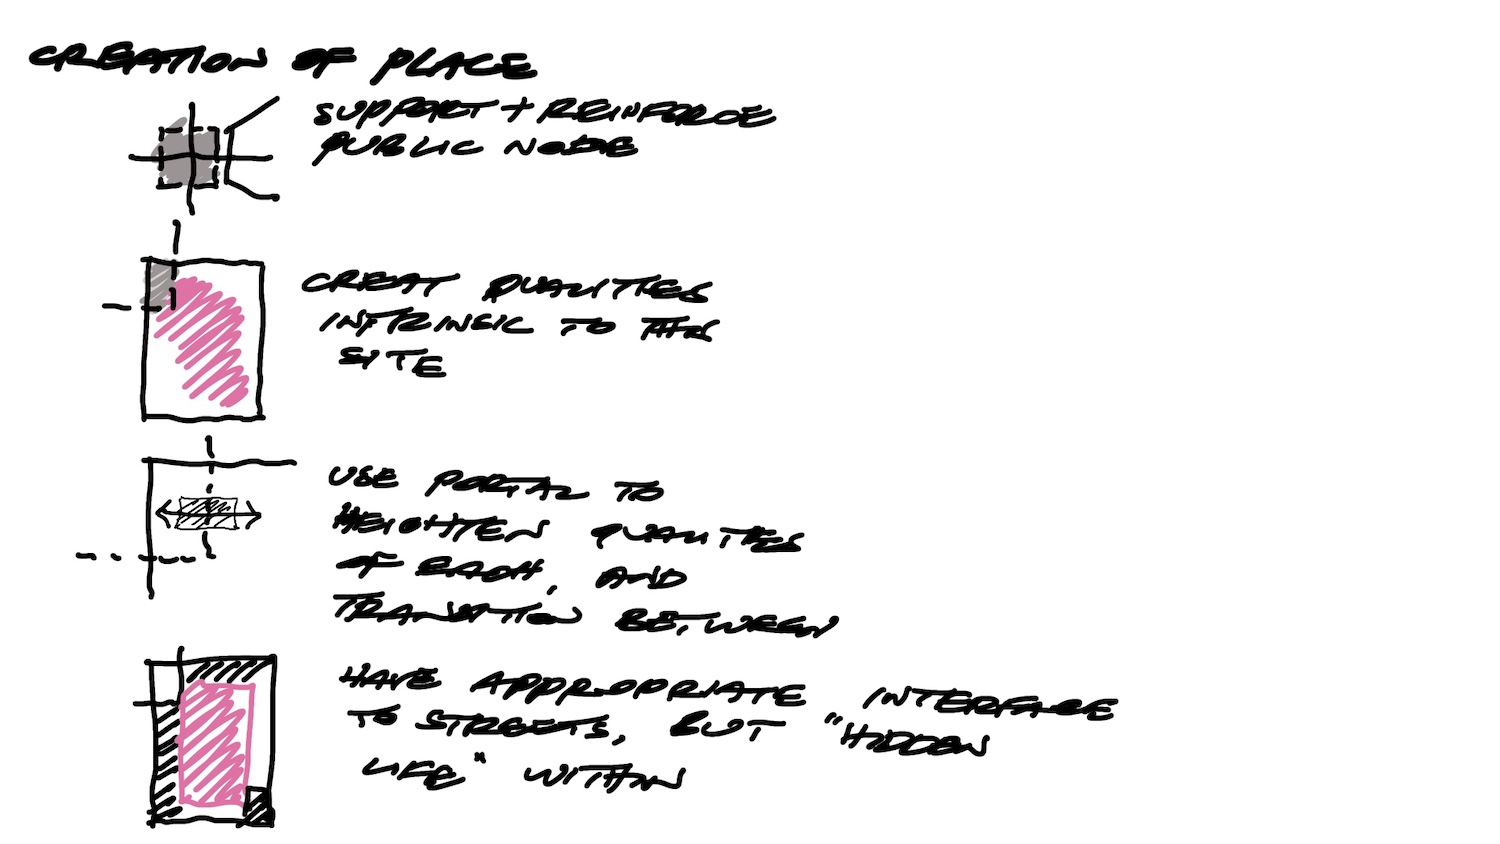 CREATION OF PLACE
SUPPORT + REINFORCE
PUBLIC NODE
CREAT QUALITIES
INTRINSIC TO THIS
SITE
USE PORTAL TO
HEIGHTEN QUALITIES
OF EACH, AND
TRANSITION BETWEEN
HAVE APPROPRIATE INTERFACE
TO STREETS, BUT "HIDDEN
LIFE" WITHIN